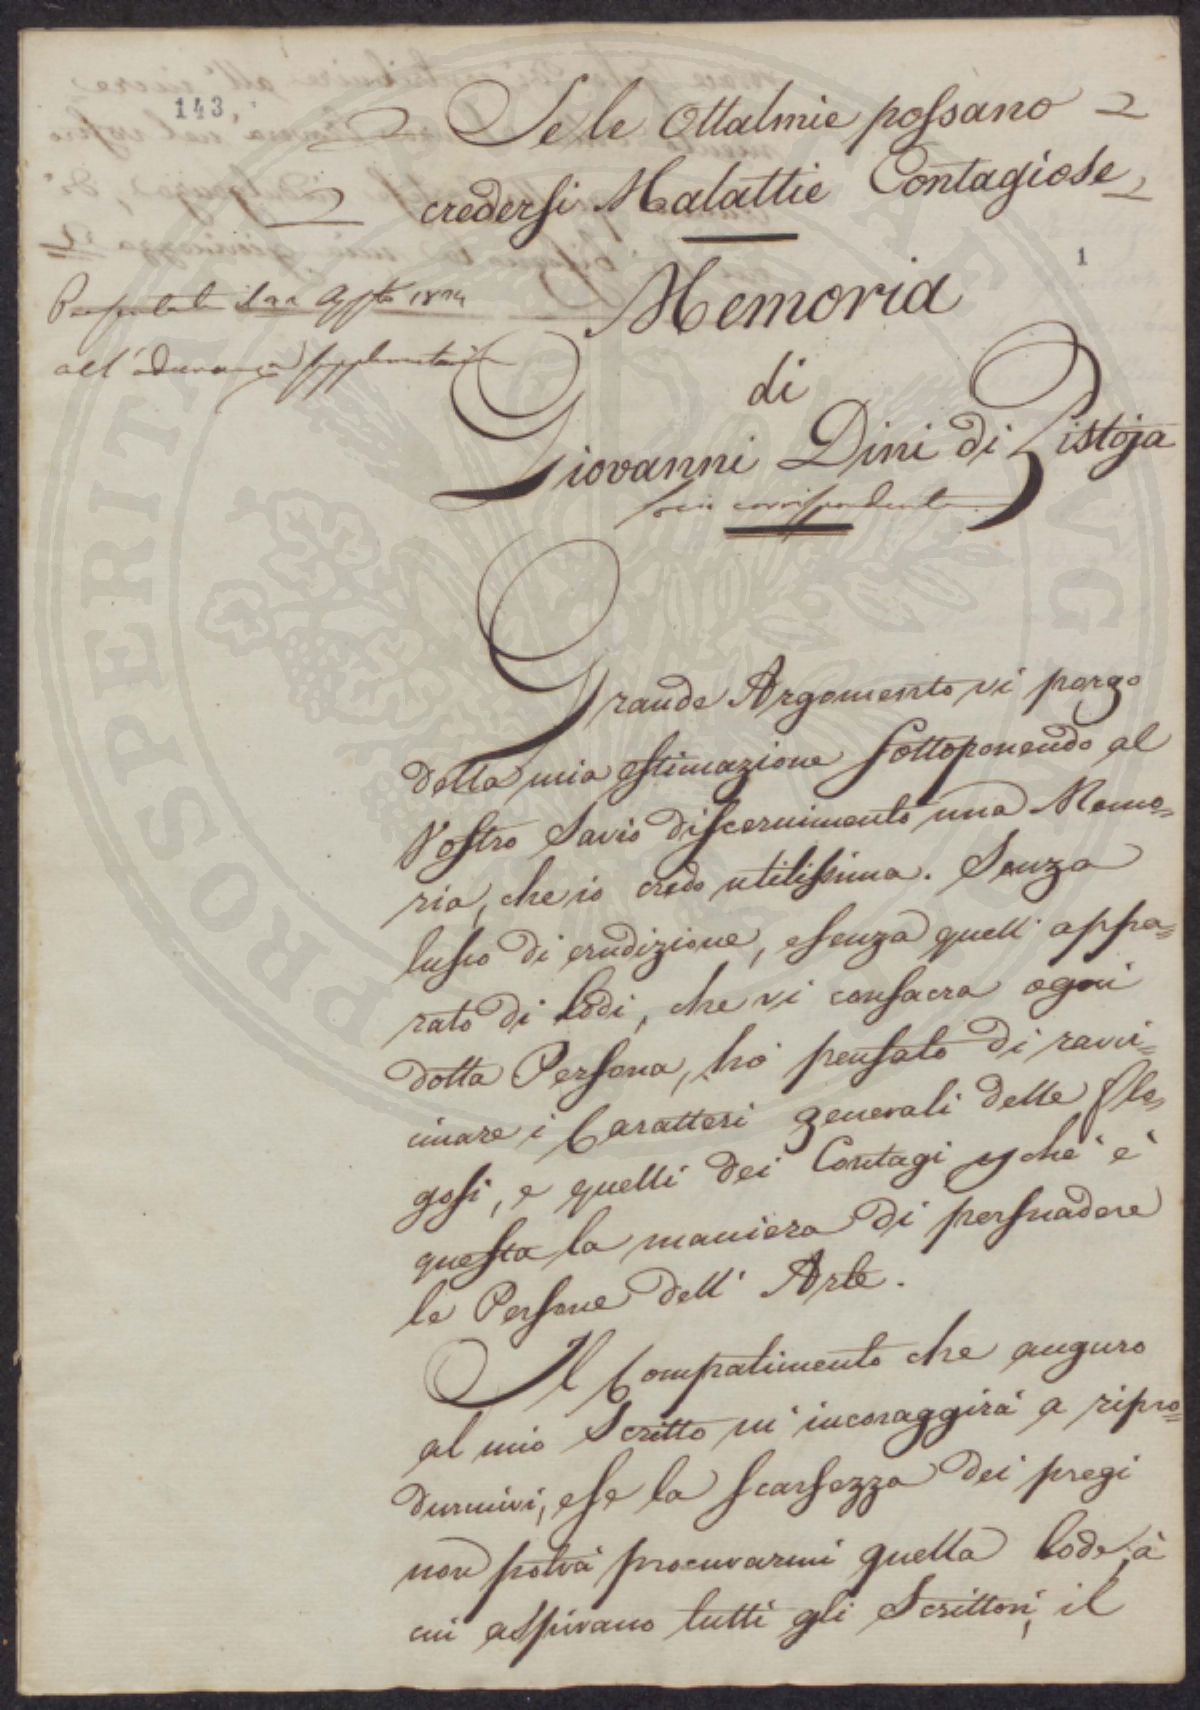 143.
Se le Ottalmie possano
credersi Malattie Contagiose
1
Memoria
Presentata il 22 Agosto 1824
all'Adunanza
di
Giovanni Dini di Pistoja
socio corrispondente
Grande Argomento vi porgo
della mia estimazione sottoponendo al
Vostro Savio discernimento una Memo=
ria, che io credo utilissima. Senza
lusso di erudizione, e senza quell'appa=
rato di lodi, che vi consacra ogni
dotta Persona, ho pensato di ravvi=
cinare i Caratteri generali delle flo=
gosi, e quelli dei Contagi che è
questa la maniera di persuadere
le Persone dell'Arte.
Il Compatimento che auguro
al mio Scritto m'incoraggirà a ripro=
durmivi, e se la scarsezza dei pregi
non potrà procurarmi quella lode, a
cui aspirano tutti gli Scrittori, il
PROSPERITA